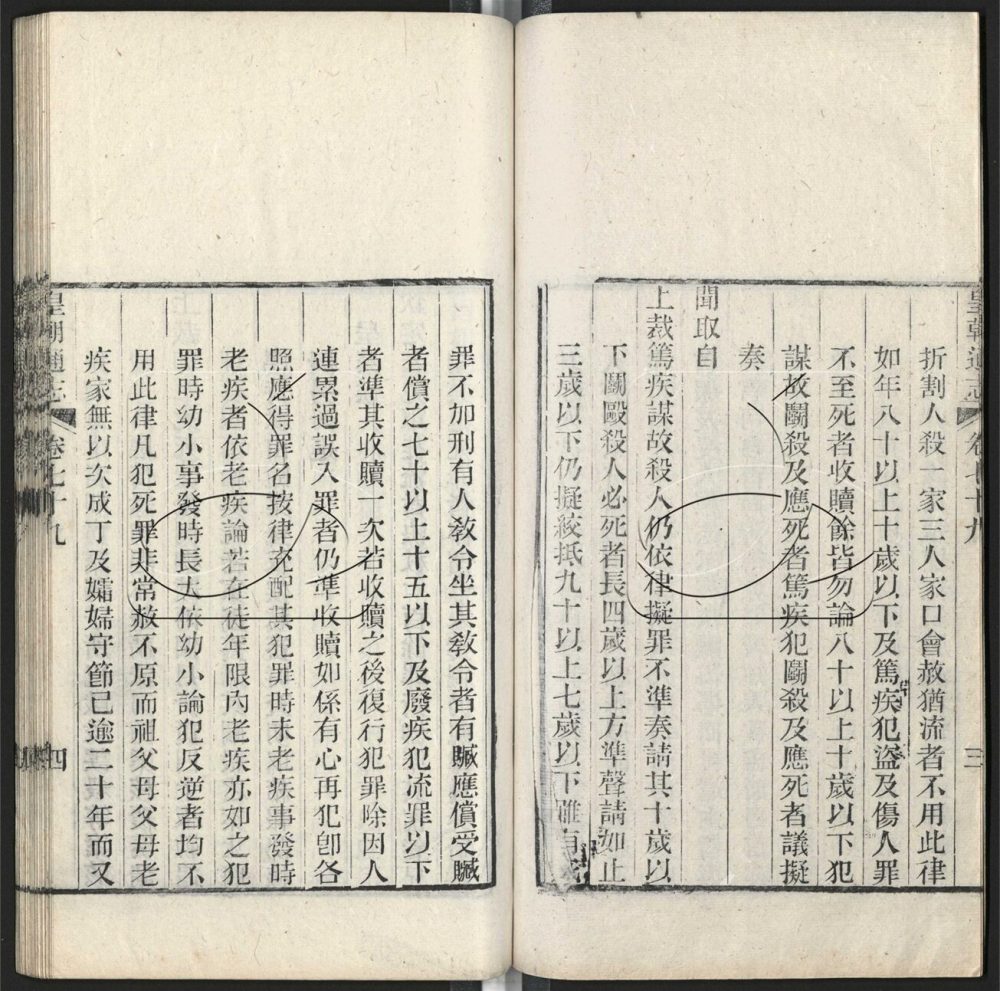 皇朝通志 卷七十九 三
折割人殺一家三人家口會赦猶流者不用此律
如年八十以上十歲以下及篤疾犯盜及傷人罪
不至死者收贖餘皆勿論八十以上十歲以下犯
謀故鬭殺及應死者篤疾犯鬭殺及應死者議擬
奏
聞取自
上裁篤疾謀故殺人仍依律擬罪不準奏請其十歲以
下鬭毆殺人必死者長四歲以上方準聲請如止
三歲以下仍擬絞抵九十以上七歲以下雖有死
罪不加刑有人敎令坐其敎令者有贓應償受贓
者償之七十以上十五以下及廢疾犯流罪以下
者準其收贖一次若收贖之後復行犯罪除因人
連累過誤入罪者仍準收贖如係有心再犯卽各
照應得罪名按律充配其犯罪時未老疾事發時
老疾者依老疾論若在徒年限內老疾亦如之犯
罪時幼小事發時長大依幼小論犯反逆者均不
用此律凡犯死罪非常赦不原而祖父母父母老
疾家無以次成丁及孀婦守節已逾二十年而又
皇朝通志 卷七十九 四